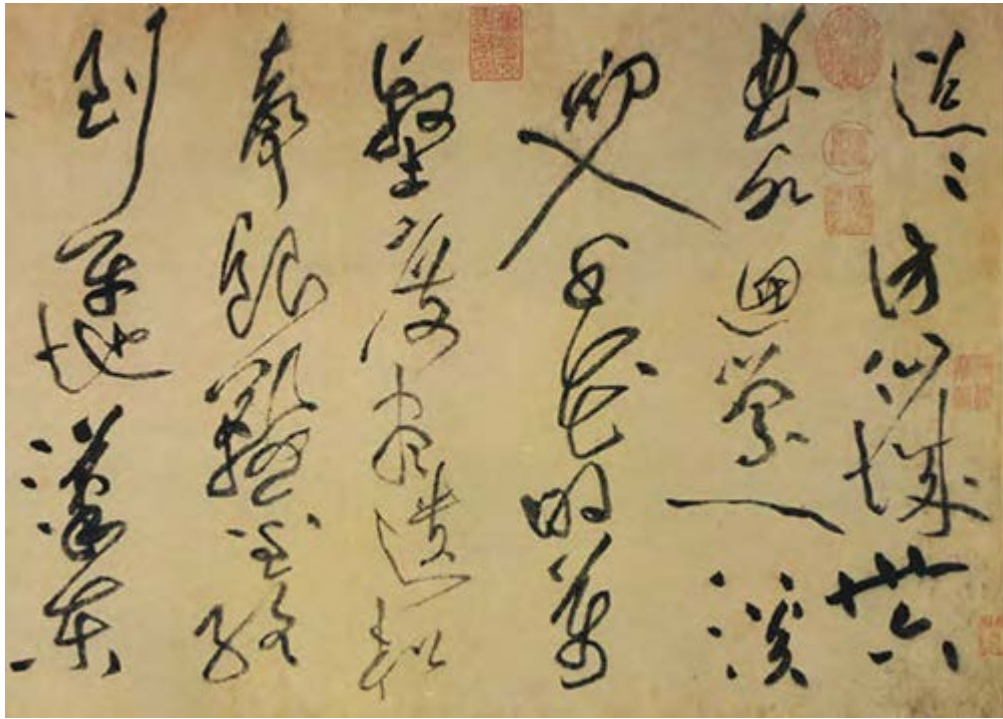 迢〻訪仙城卅六
曲水迴縈一溪
初入千花明萬
壑度盡遺松
聲銀鞍金絡
到平地漢東